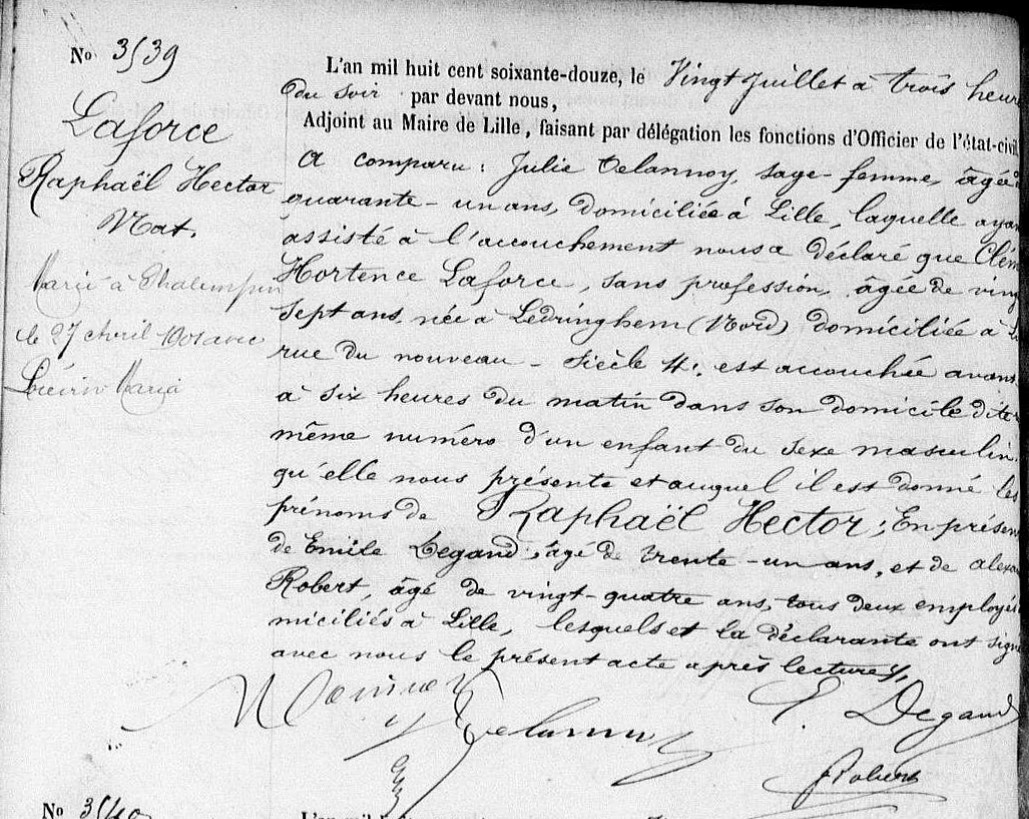 No 3539
Laforce
Raphaël Hector
Nat.
Marié à Phalempin
le 27 avril 1901 avec
Maria
L'an mil huit cent soixante-douze, le Vingt Juillet à trois heur
du soir par devant nous,
Adjoint au Maire de Lille, faisant par délégation les fonctions d'Officier de l'état-civil
a comparu : Julie Delannoy, sage-femme, âgée
quarante-un ans, domiciliée à Lille, laquelle ayan
assisté à l'accouchement nous a déclaré que Clém
Hortence Laforce, sans profession, âgée de ving
sept ans, née à Ledringhem (Nord) domiciliée à Li
rue du nouveau-siècle 4, est accouchée avant
à six heures du matin dans son domicile dite
même numéro d'un enfant du sexe masculin
qu'elle nous présente et auquel il est donné les
prénoms de Raphaël Hector ; En présen
de Emile Degand, âgé de trente-un ans, et de alexan
Robert, âgé de vingt-quatre ans, tous deux employés
miciliés à Lille, lesquels et la déclarante ont sign
avec nous le présent acte après lecture,
Delannoy
E. Degand
Robert
No 3540
L'an mil